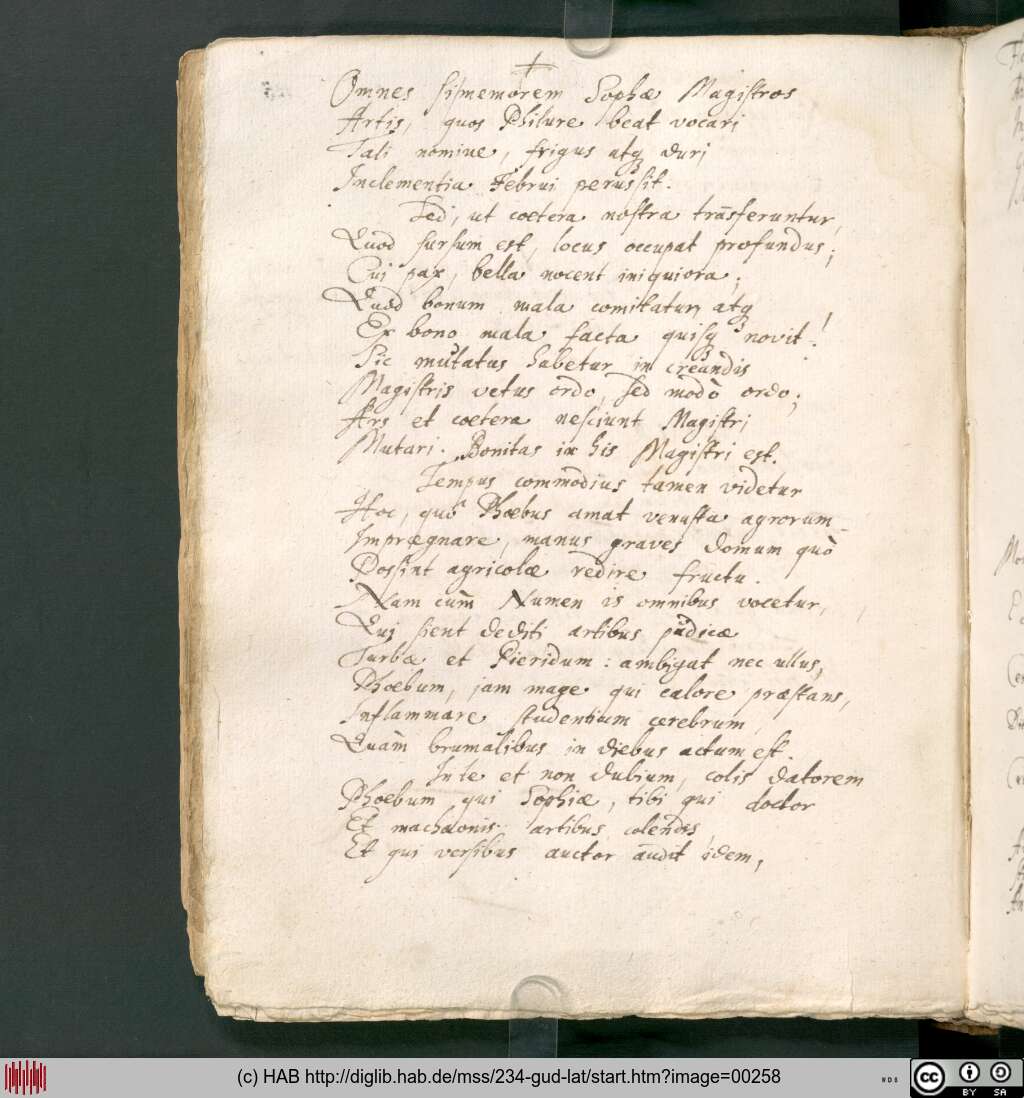 Omnes si memorem Sophæ Magistros
Artis, quos Philure beat vocari
Tali nomine, frigus atq duri
Inclementia Februi perussit.
Sed, ut cœtera nostra trāsferuntur,
Quod sursum est, locus occupat profundus;
Cui pax, bella nocent iniquiora;
Quod bonum mala comitatur, atq
Ex bono mala facta quisq novit!
Sic mutatus habetur in creandis
Magistris vetus ordo, sed modò ordo;
Ars et cœtera nesciunt Magistri
Mutari. Bonitas in his Magistri est.
Tempus commodius tamen videtur
Hoc, quô Phœbus amat venusta agrorum
Imprægnare, manus graves domum quò
Possint agricolæ redire fructu.
Nam cùm Numen is omnibus vocetur,
Qui sient dediti artibus pudicæ
Turbæ et Pieridum: ambigat nec ullus,
Phœbum, jam mage qui calore præstans,
Inflammare studentium cerebrum,
Quàm brumalibus in diebus actum est.
In te et non dubium, colis datorem
Phoebum qui Sophiæ, tibi qui doctor
Et machaonis artibus colendis,
Et qui versibus auctor audit idem,
(c) HAB http://diglib.hab.de/mss/234-gud-lat/start.htm?image=00258
cc BY SA